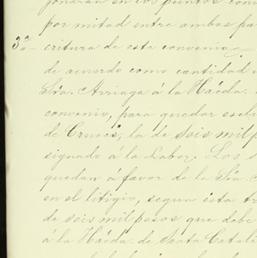 en los puntos con
por mitad entre ambas pa
3ª critura de este convenio.
de acuerdo como cantidad
Sra. Arriaga á la Hacda.
convenio, para quedar escl
de Cruces, la de seis mil p
signado á la Labor. Los
quedan á favor de la Sra.
en el litigio, segun esta tr
de seis mil pesos que debe
á la Hacda. de Santa Catali